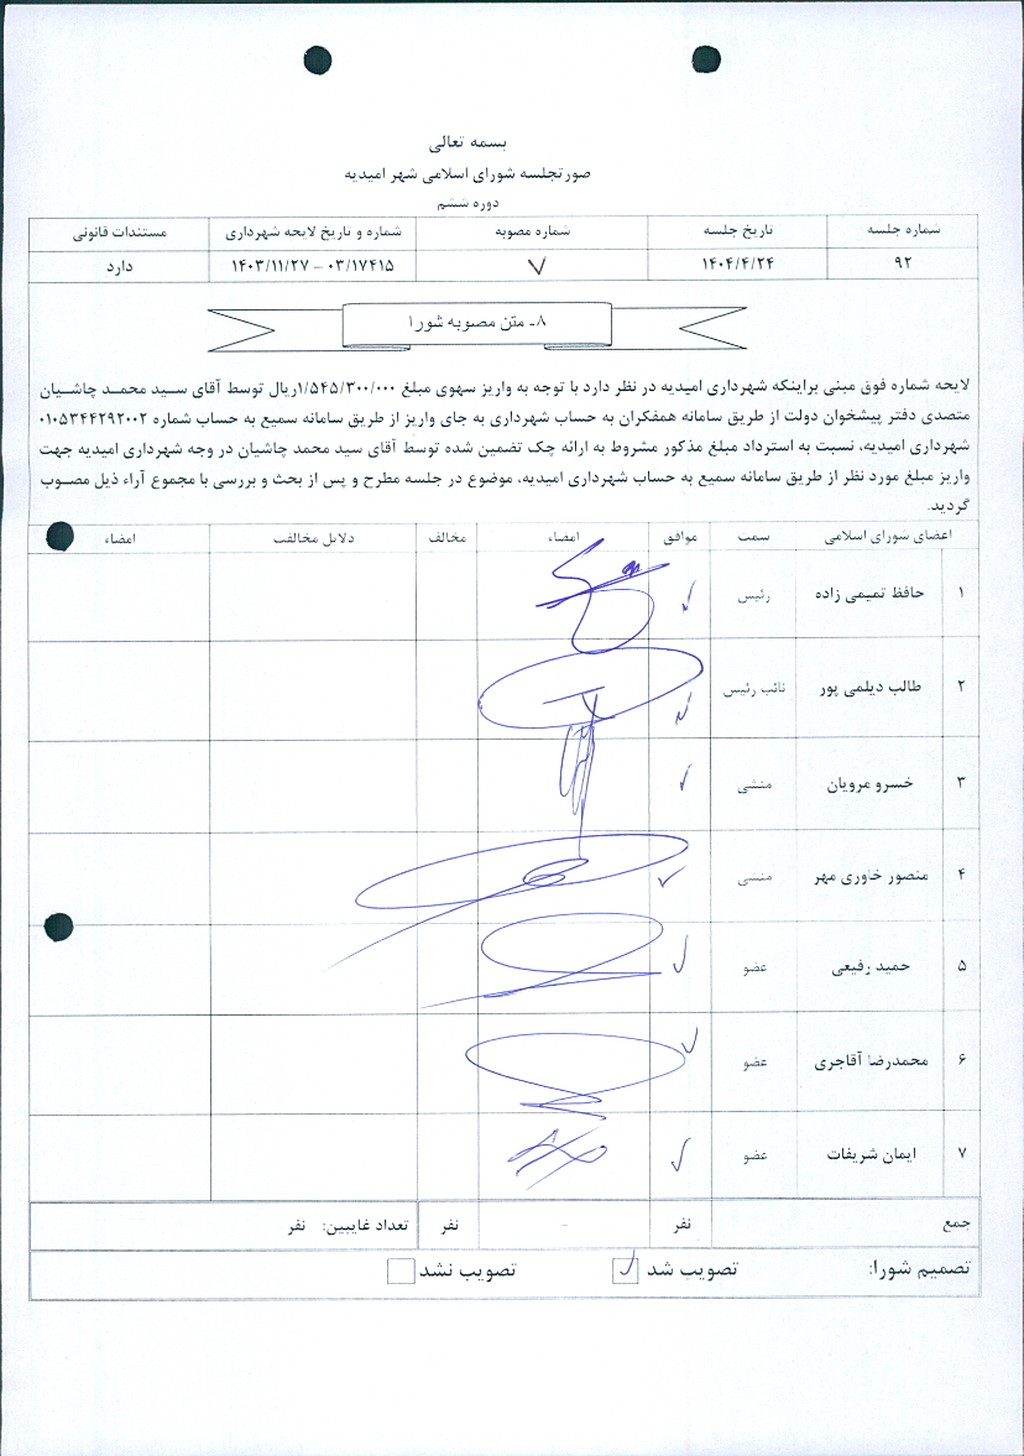 بسمه تعالی
صورتجلسه شورای اسلامی شهر امیدیه
دوره ششم
شماره جلسه تاریخ جلسه شماره مصوبه شماره و تاریخ لایحه شهرداری مستندات قانونی
۹۲ ۱۴۰۴/۴/۲۴ ۷ ۰۳/۱۷۴۱۵ – ۱۴۰۳/۱۱/۲۷ دارد
۸- متن مصوبه شورا
لایحه شماره فوق مبنی براینکه شهرداری امیدیه در نظر دارد با توجه به واریز سهوی مبلغ ۱/۵۴۵/۳۰۰/۰۰۰ریال توسط آقای سید محمد چاشیان
متصدی دفتر پیشخوان دولت از طریق سامانه همفکران به حساب شهرداری به جای واریز از طریق سامانه سمیع به حساب شماره ۰۱۰۵۳۴۴۲۹۲۰۰۲
شهرداری امیدیه، نسبت به استرداد مبلغ مذکور مشروط به ارائه چک تضمین شده توسط آقای سید محمد چاشیان در وجه شهرداری امیدیه جهت
واریز مبلغ مورد نظر از طریق سامانه سمیع به حساب شهرداری امیدیه، موضوع در جلسه مطرح و پس از بحث و بررسی با مجموع آراء ذیل مصوب
گردید.
اعضای شورای اسلامی سمت موافق امضاء مخالف دلایل مخالفت امضاء
۱ حافظ تمیمی زاده رئیس
۲ طالب دیلمی پور نائب رئیس
۳ خسرو مرویان منشی
۴ منصور خاوری مهر منشی
۵ حمید رفیعی عضو
۶ محمدرضا آقاجری عضو
۷ ایمان شریفات عضو
جمع نفر - نفر تعداد غایبین: نفر
تصمیم شورا: تصویب شد تصویب نشد